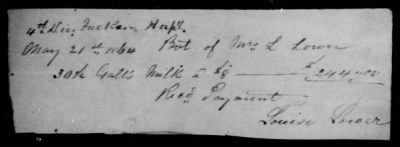 4th Div. Jackson Hospl.
May 21st 1864 Bot of Mrs L Lower
30½ Galls Milk @ $8 — $244.00
Recd Payment
Louise Lower